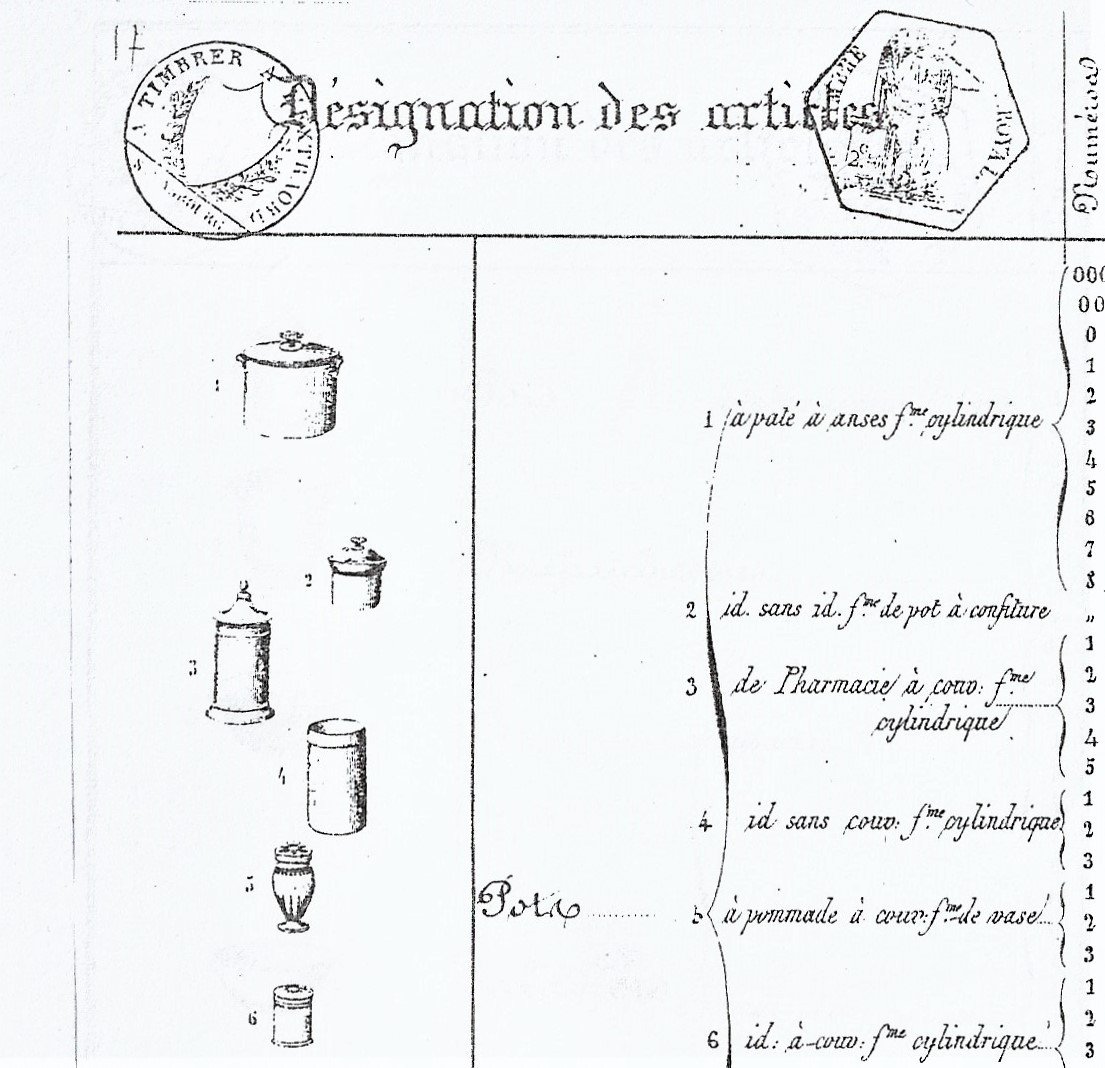 17
A TIMBRER A L'EXTRAORD
Désignation des articles
TIMBRE ROYAL.
2e
Numéros
000
00
0
1
2
1 à paté à anses fme cylindrique 3
4
5
6
7
8
2 id. sans id. fme de pot à confiture „
1
3 de Pharmacie à couv: fme 2
cylindrique 3
4
5
1
4 id sans couv: fme cylindrique 2
3
1
Pots 5 à pommade à couv: fme de vase 2
3
1
2
6 id: à couv: fme cylindrique 3
1
2
3
4
5
6